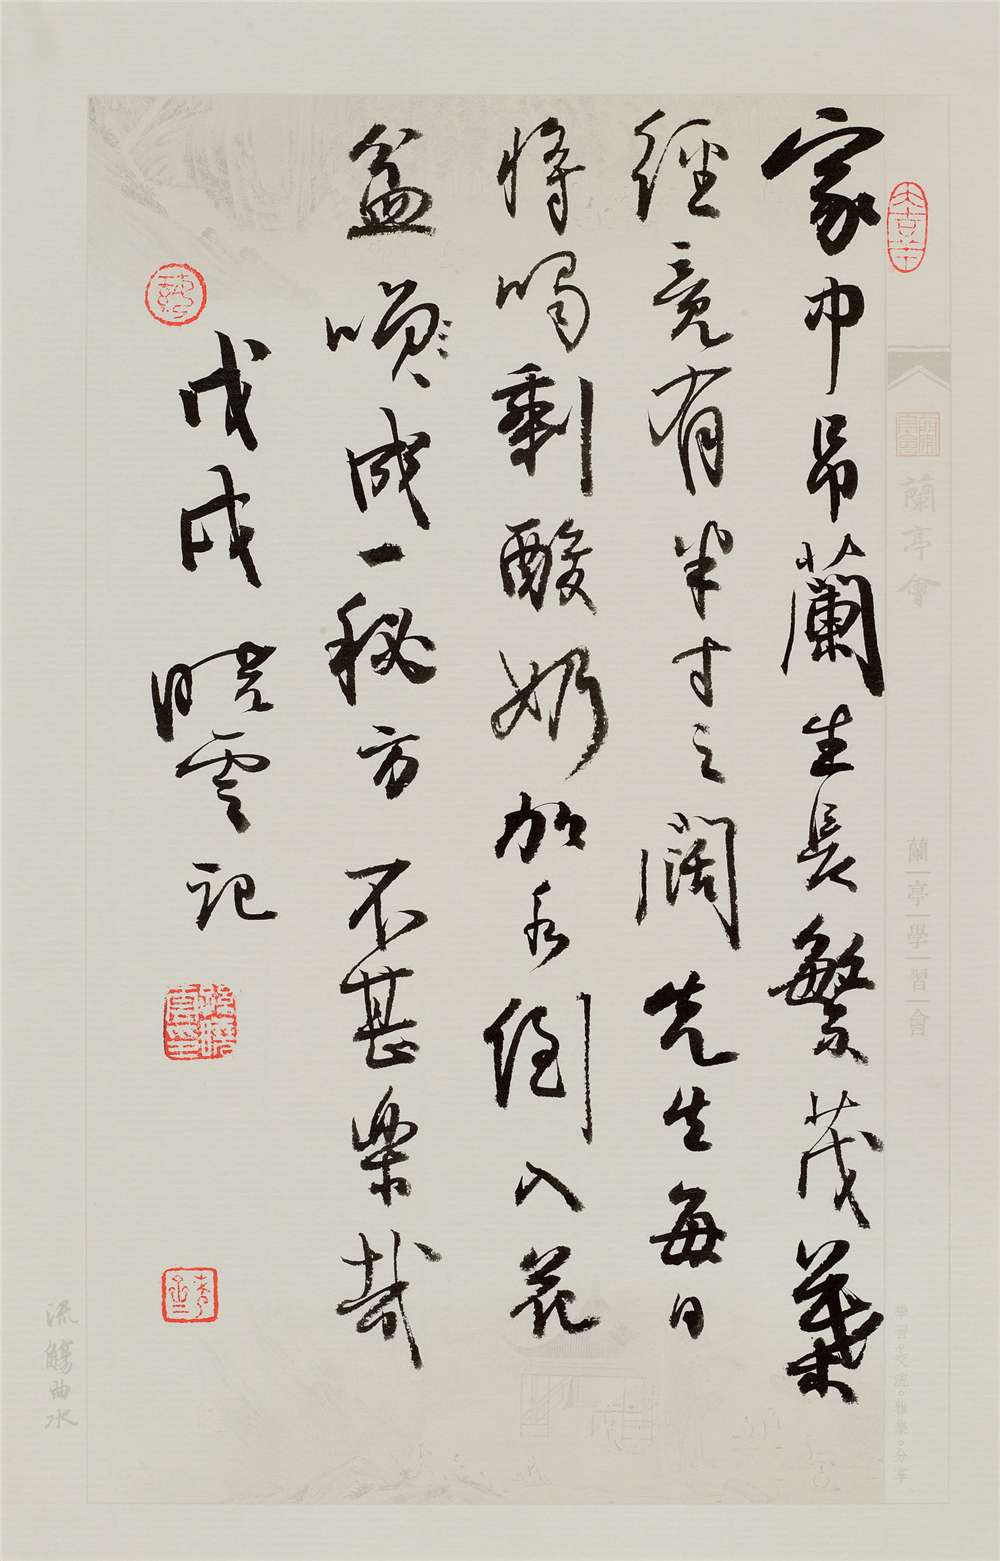 大吉羊
家中吊蘭生長繁茂葉
經竟有半寸之闊先生每日
將喝剩酸奶加水倒入花
盆成一秘方不甚樂哉
戊戌 曉雲記
蘭亭會
蘭亭學習會
流觴曲水